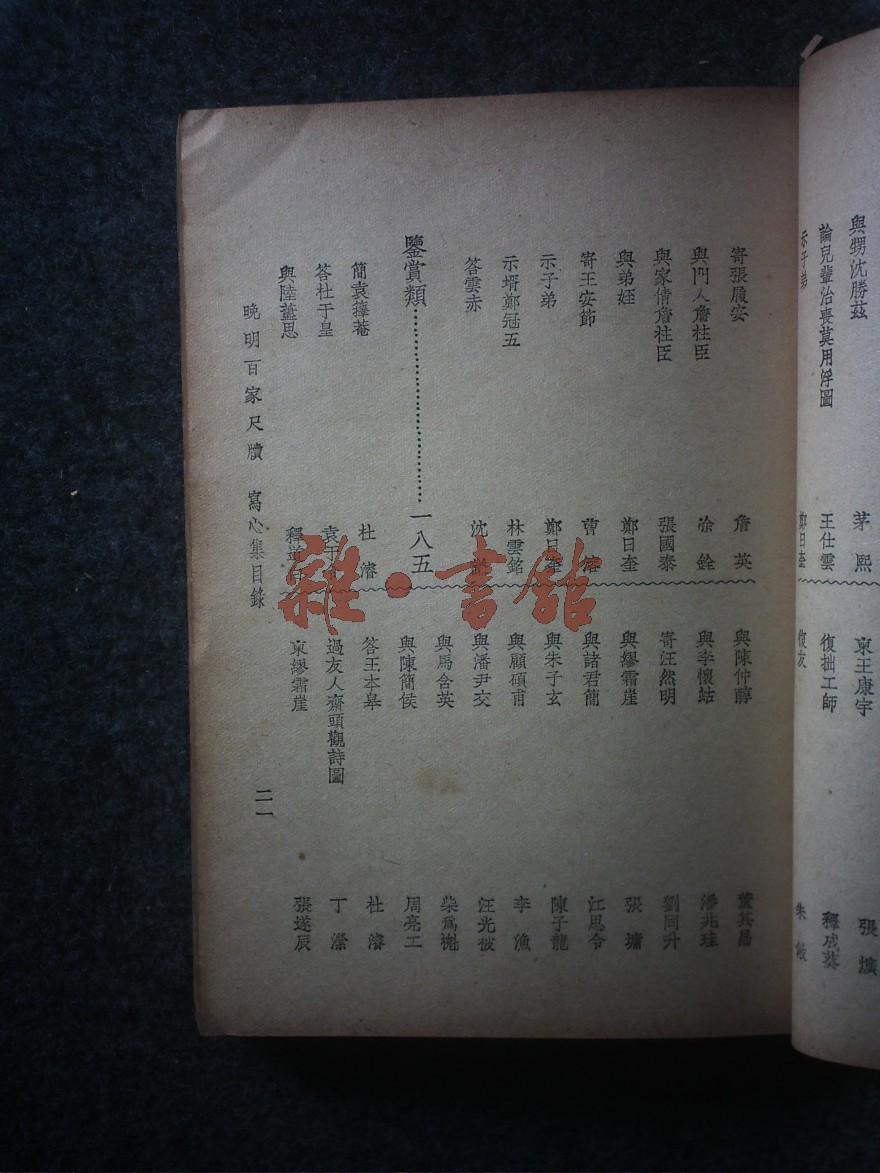 與甥沈勝茲 茅熙
論兒輩治喪莫用浮圖 王仕雲
示子弟 鄭日奎
柬王康宇 張爌
復拙工師 釋戒葵
復友
寄張履安 詹英
與門人詹柱臣 涂銓
與家倩詹柱臣 張國泰
與弟姪 鄭日奎
寄王安節
示子弟 鄭日奎
示壻鄭冠五 林雲銘
答雲赤
鑒賞類 一八五
簡袁籜菴 杜濬
答杜于皇
與陸藎思
與陳仲醇 董其昌
與李懷岵 潘兆珪
寄汪然明 劉同升
與繆霜崖 張墉
與諸君簡 江思令
與朱子玄 陳子龍
與顧碩甫 李漁
與潘尹交 汪光被
與馬含英
與陳簡侯 周亮工
答王本皋 杜濬
過友人齋頭觀詩圖 丁濚
柬繆霜崖 張遂辰
晚明百家尺牘 寫心集目錄
二一
雜·書館